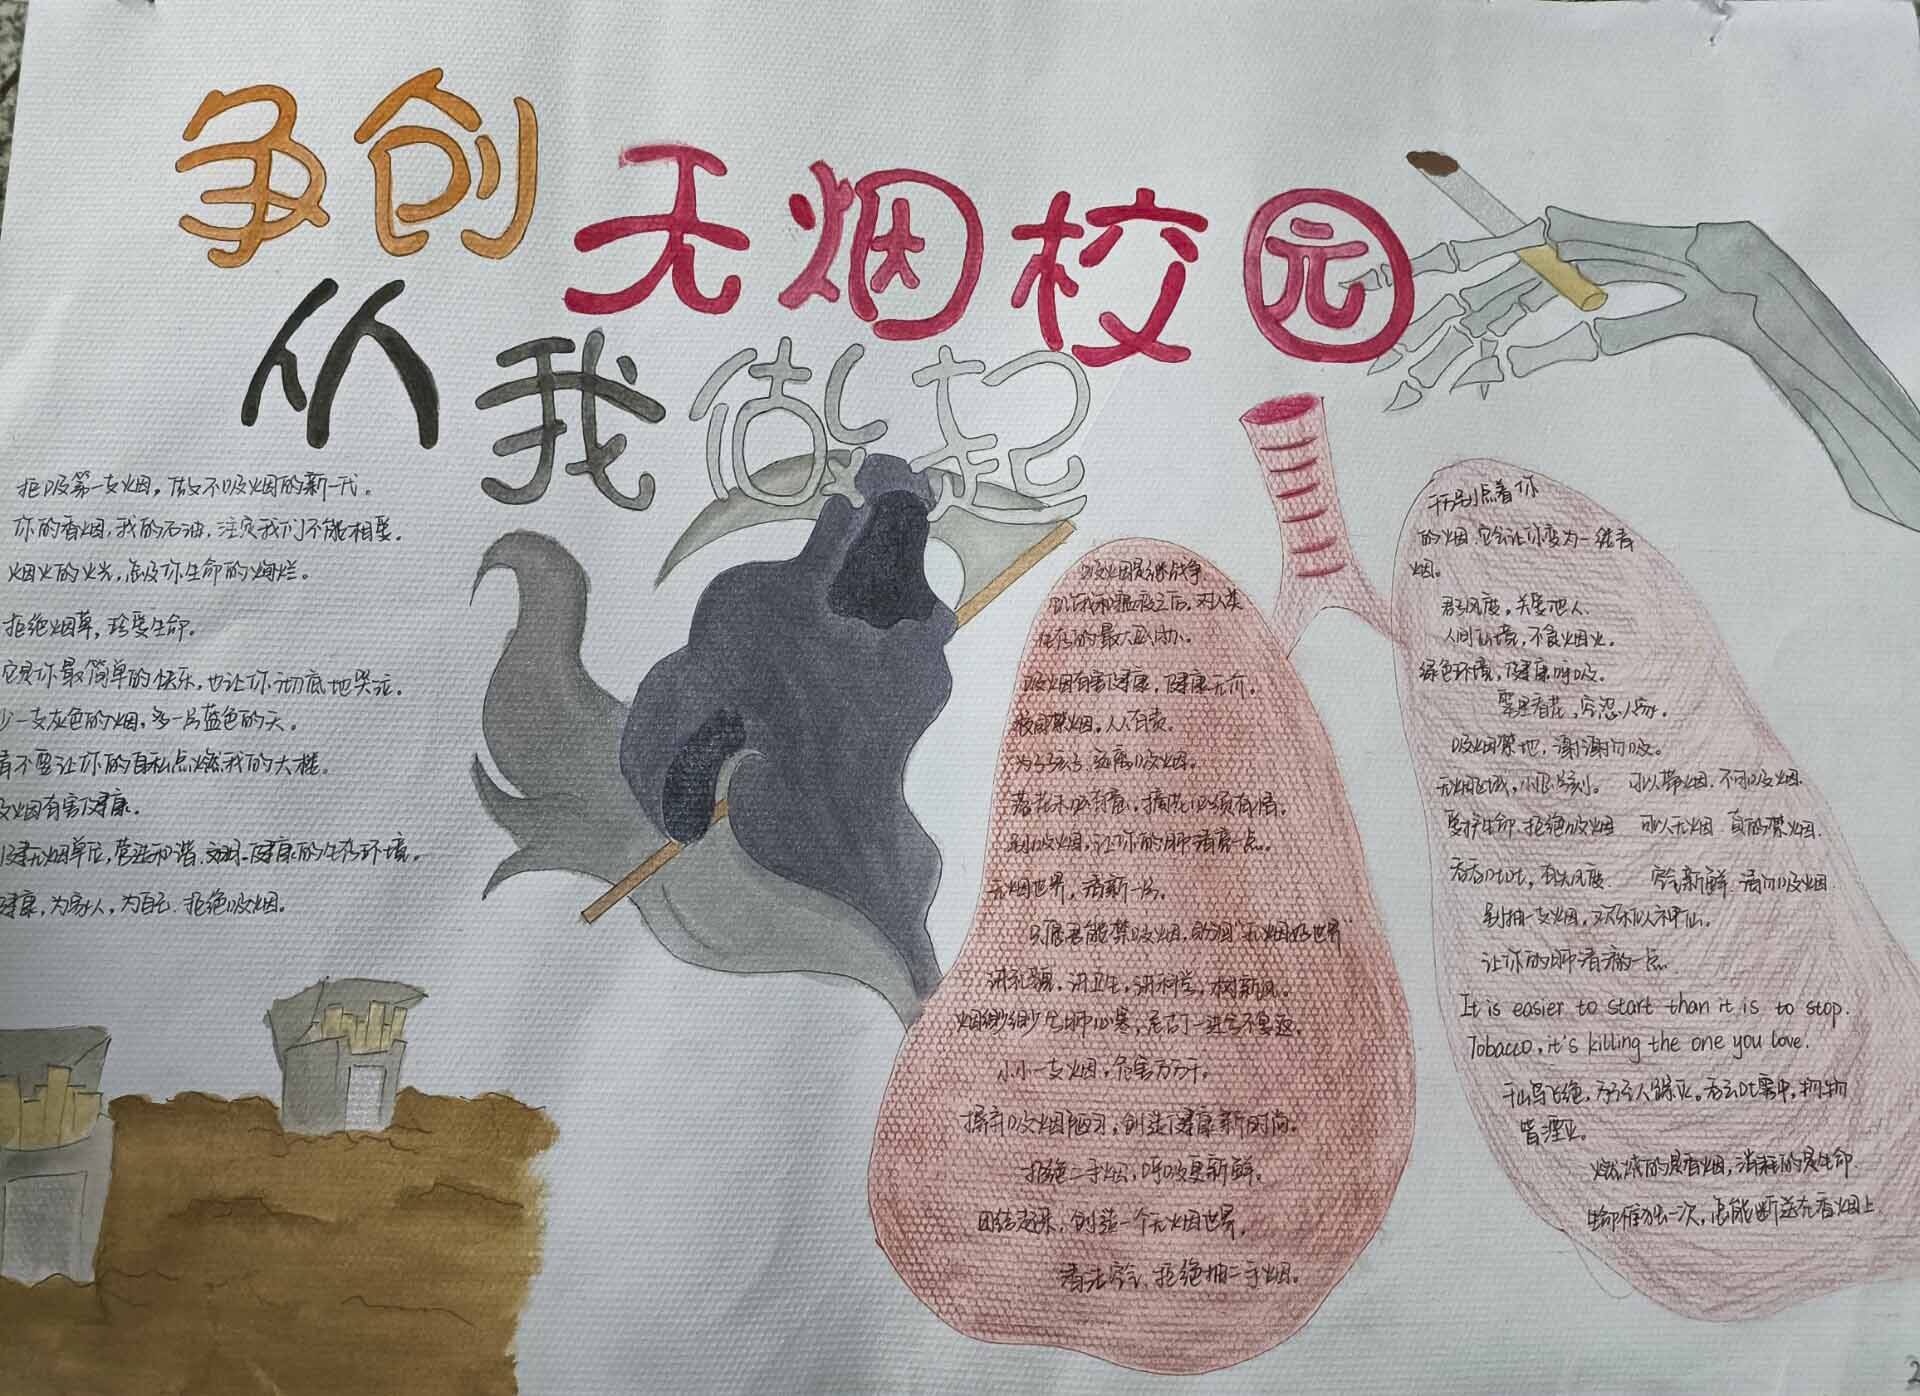 争创
无烟校园
从我做起
拒吸第一支烟，做不吸烟的新一代。
你的香烟，我的石油，注定我们不能相聚。
烟火的火光，怎及你生命的绚烂。
拒绝烟草，珍爱生命。
它是你最简单的快乐，也让你彻底地哭泣。
少一支灰色的烟，多一片蓝色的天。
不要让你的自私点燃我的大楼。
烟有害健康。
建无烟单位，营造和谐、文明、健康的生存环境。
健康，为家人，为自己，拒绝吸烟。
吸烟是继战争
饥饿和瘟疫之后，对人类
生存的最大威胁。
吸烟有害健康，健康无价。
校园禁烟，人人有责。
为了孩子，远离吸烟。
落花未必有意，摘花必须有情。
别吸烟，让你的肺清爽一点。
无烟世界，清新一片。
只愿君能禁吸烟，助润“无烟好世界”
讲礼貌，讲卫生，讲科学，树新风。
烟缈缈兮肺心寒，尼古丁一进兮不复返。
小小一支烟，危害万万千。
摒弃吸烟陋习，创造健康新时尚。
拒绝二手烟，呼吸更新鲜。
团结起来，创造一个无烟世界。
清洁空气，拒绝抽二手烟。
千万别点着你
的烟，它会让你变为一缕青
烟。
君子风度，关爱他人。
人间仙境，不食烟火。
绿色环境，健康呼吸。
雾里看花，
吸烟禁地，谢谢勿吸。
无烟区域，小憩片刻。 可以带烟，不可吸烟。
爱护生命，拒绝吸烟 可以无烟，真的禁烟。
吞吞吐吐，有失风度。 空气新鲜，请勿吸烟。
别抽一支烟，欢乐似神仙。
让你的肺清爽一点
It is easier to start than it is to stop.
Tobacco, it's killing the one you love.
千山鸟飞绝，万径人踪灭。吞云吐雾中，物物
皆湮灭。
燃烧的是香烟，消耗的是生命
生命仅独一次，怎能断送在香烟上
2